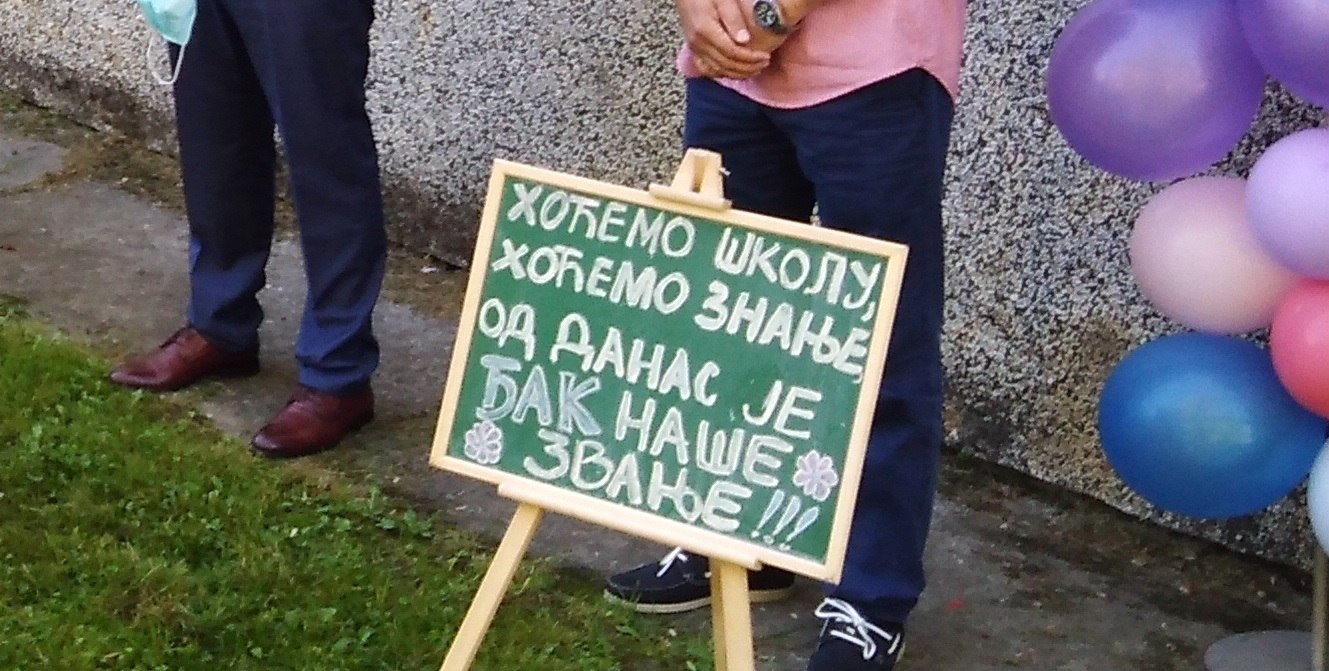 ХОЋЕМО ШКОЛУ,
ХОЋЕМО ЗНАЊЕ
ОД ДАНАС ЈЕ
ЂАК НАШЕ
ЗВАЊЕ!!!